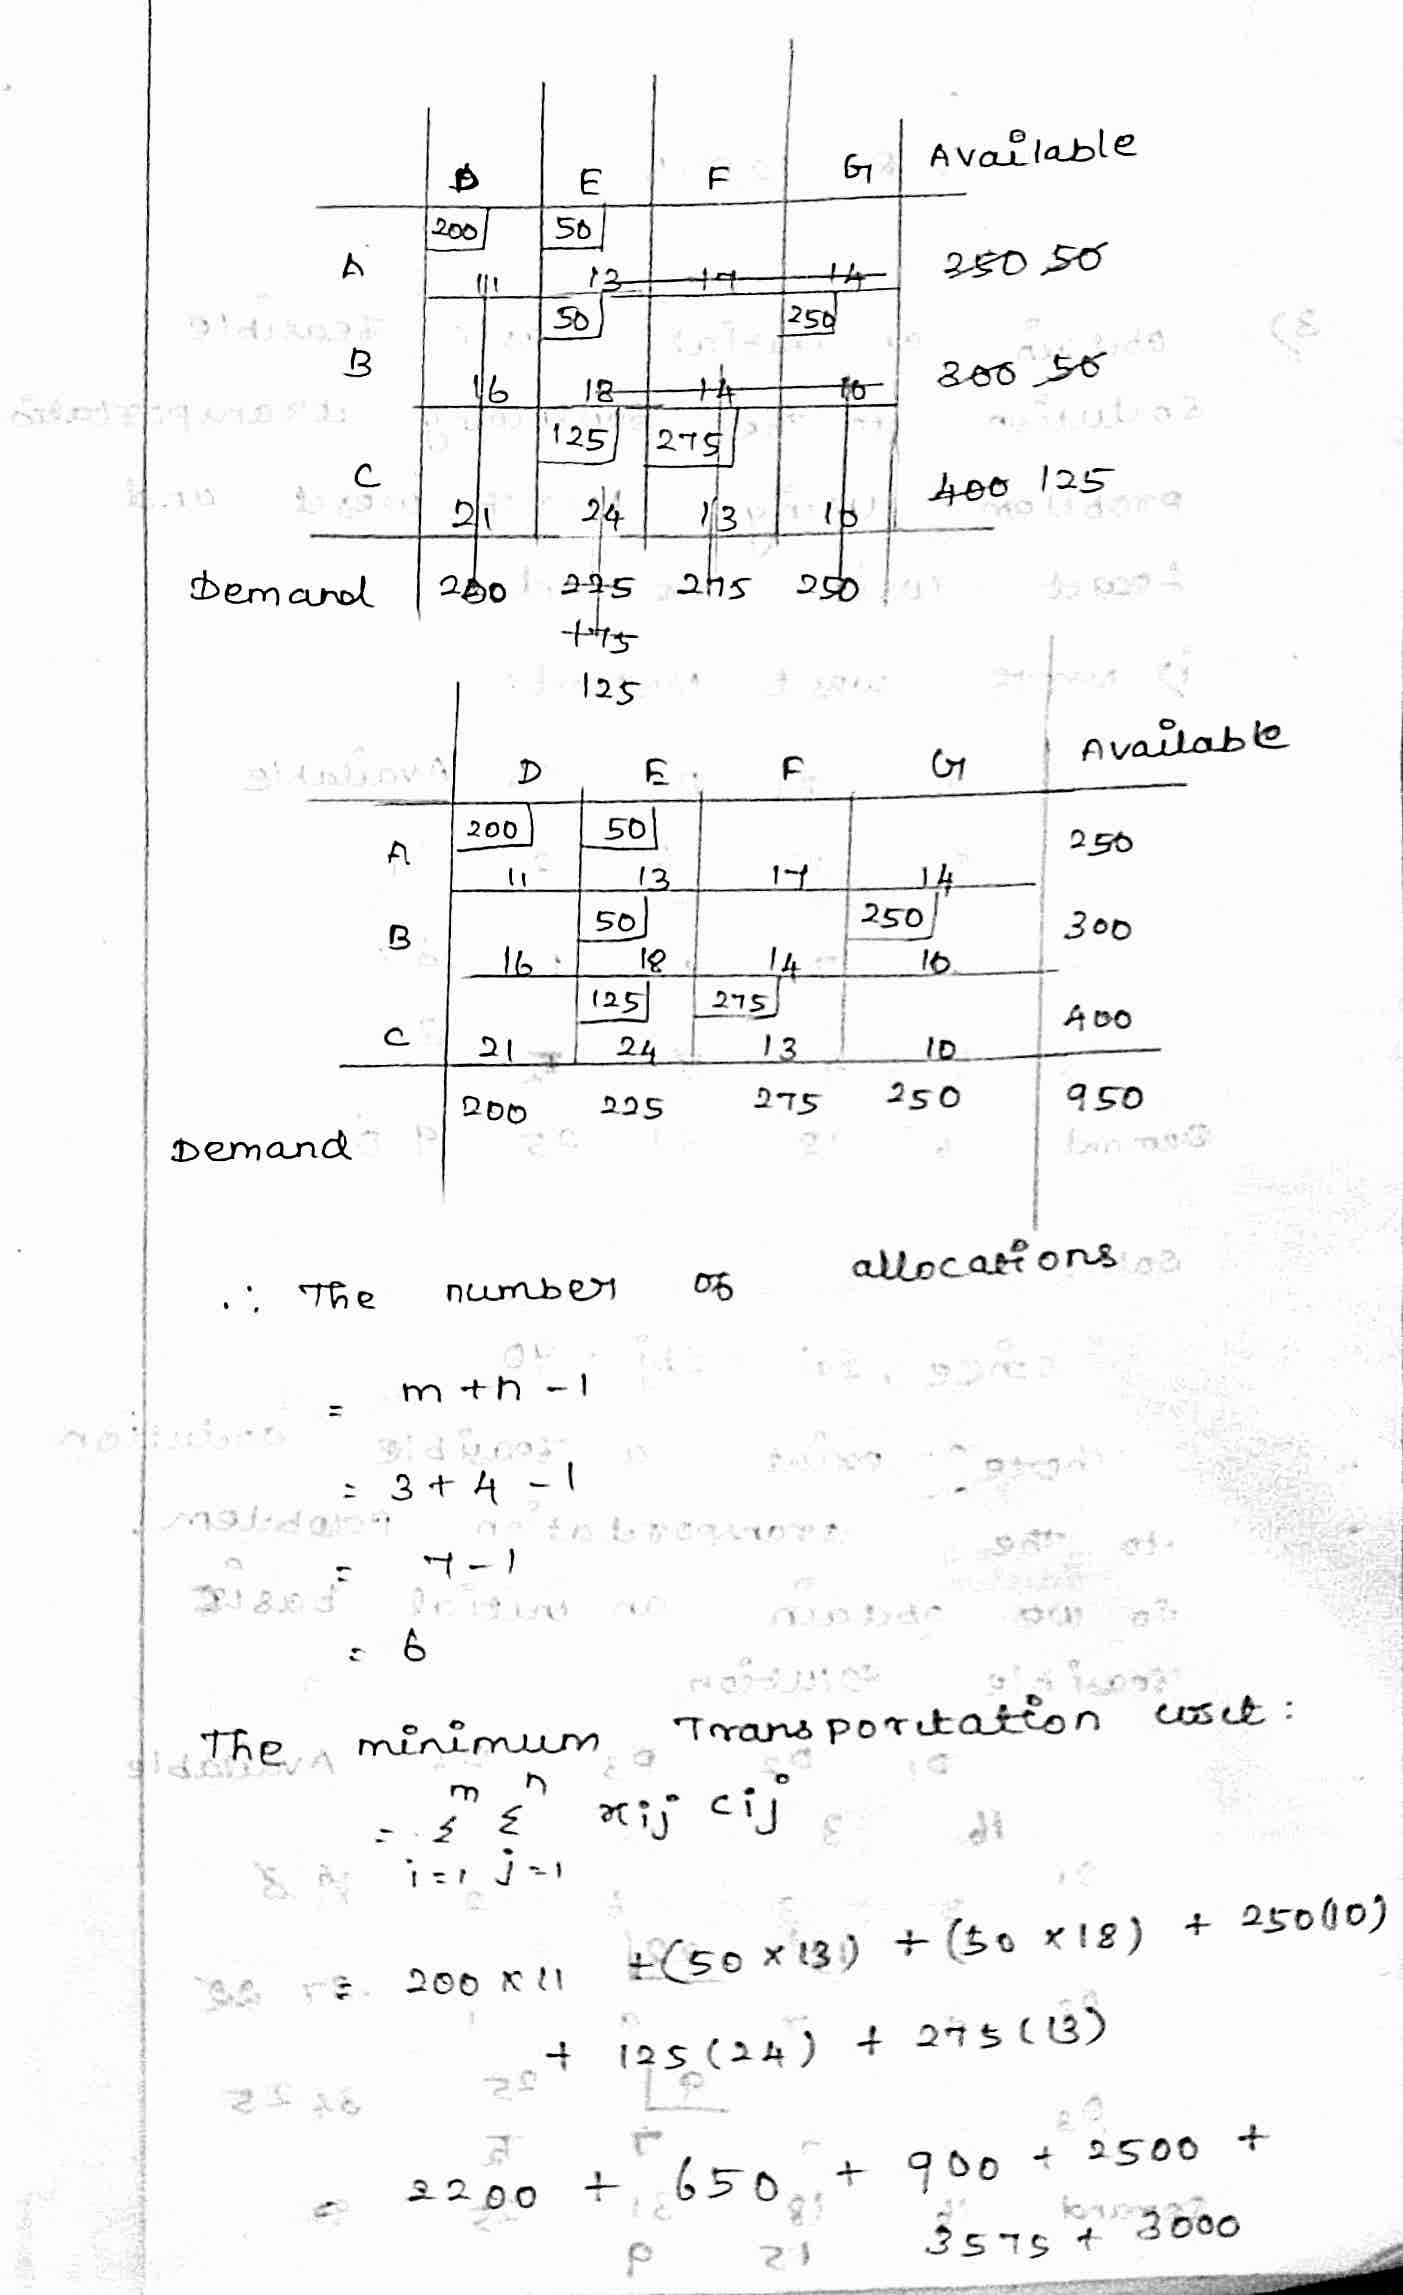 D E F G Available
200 50
A 11 13 17 14 250 50
50 250
B 16 18 14 10 300 50
125 275
C 21 24 13 10 400 125
Demand 200 225 275 250
175
125
D E F G Available
200 50
A 11 13 17 14 250
50 250
B 16 18 14 10 300
125 275
C 21 24 13 10 400
200 225 275 250 950
Demand
∴ The number of allocations
= m+n-1
= 3+4-1
= 7-1
= 6
The minimum Transportation cost:
= Σ^m_{i=1} Σ^n_{j=1} xij cij
= 200 x 11 + (50 x 13) + (50 x 18) + 250(10)
+ 125(24) + 275(13)
= 2200 + 650 + 900 + 2500 +
3575 + 3000